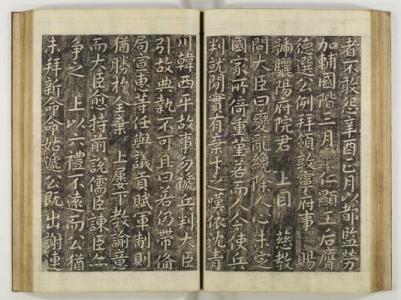 者不敢怠辛酉正月以都監勞
加輔國階三月 仁顯王后膺
德選公例拜領敦寧府事 賜
號驪陽府院君 上因 慈教
問大臣曰變亂纔除人心未定
國家所倚重莫若而人今使兵
判就閒實有棄才之嘆依沈青
川韓西平故事勿褫兵判大臣
引故典執不可且曰若仍帶備
局宣惠等任與議貢賦軍制則
猶勝於全棄 上屢下教諭意
而大臣愈持前說儒臣諫臣
爭之 上以六禮不遠而公猶
未拜新命命姑遞公既出謝連